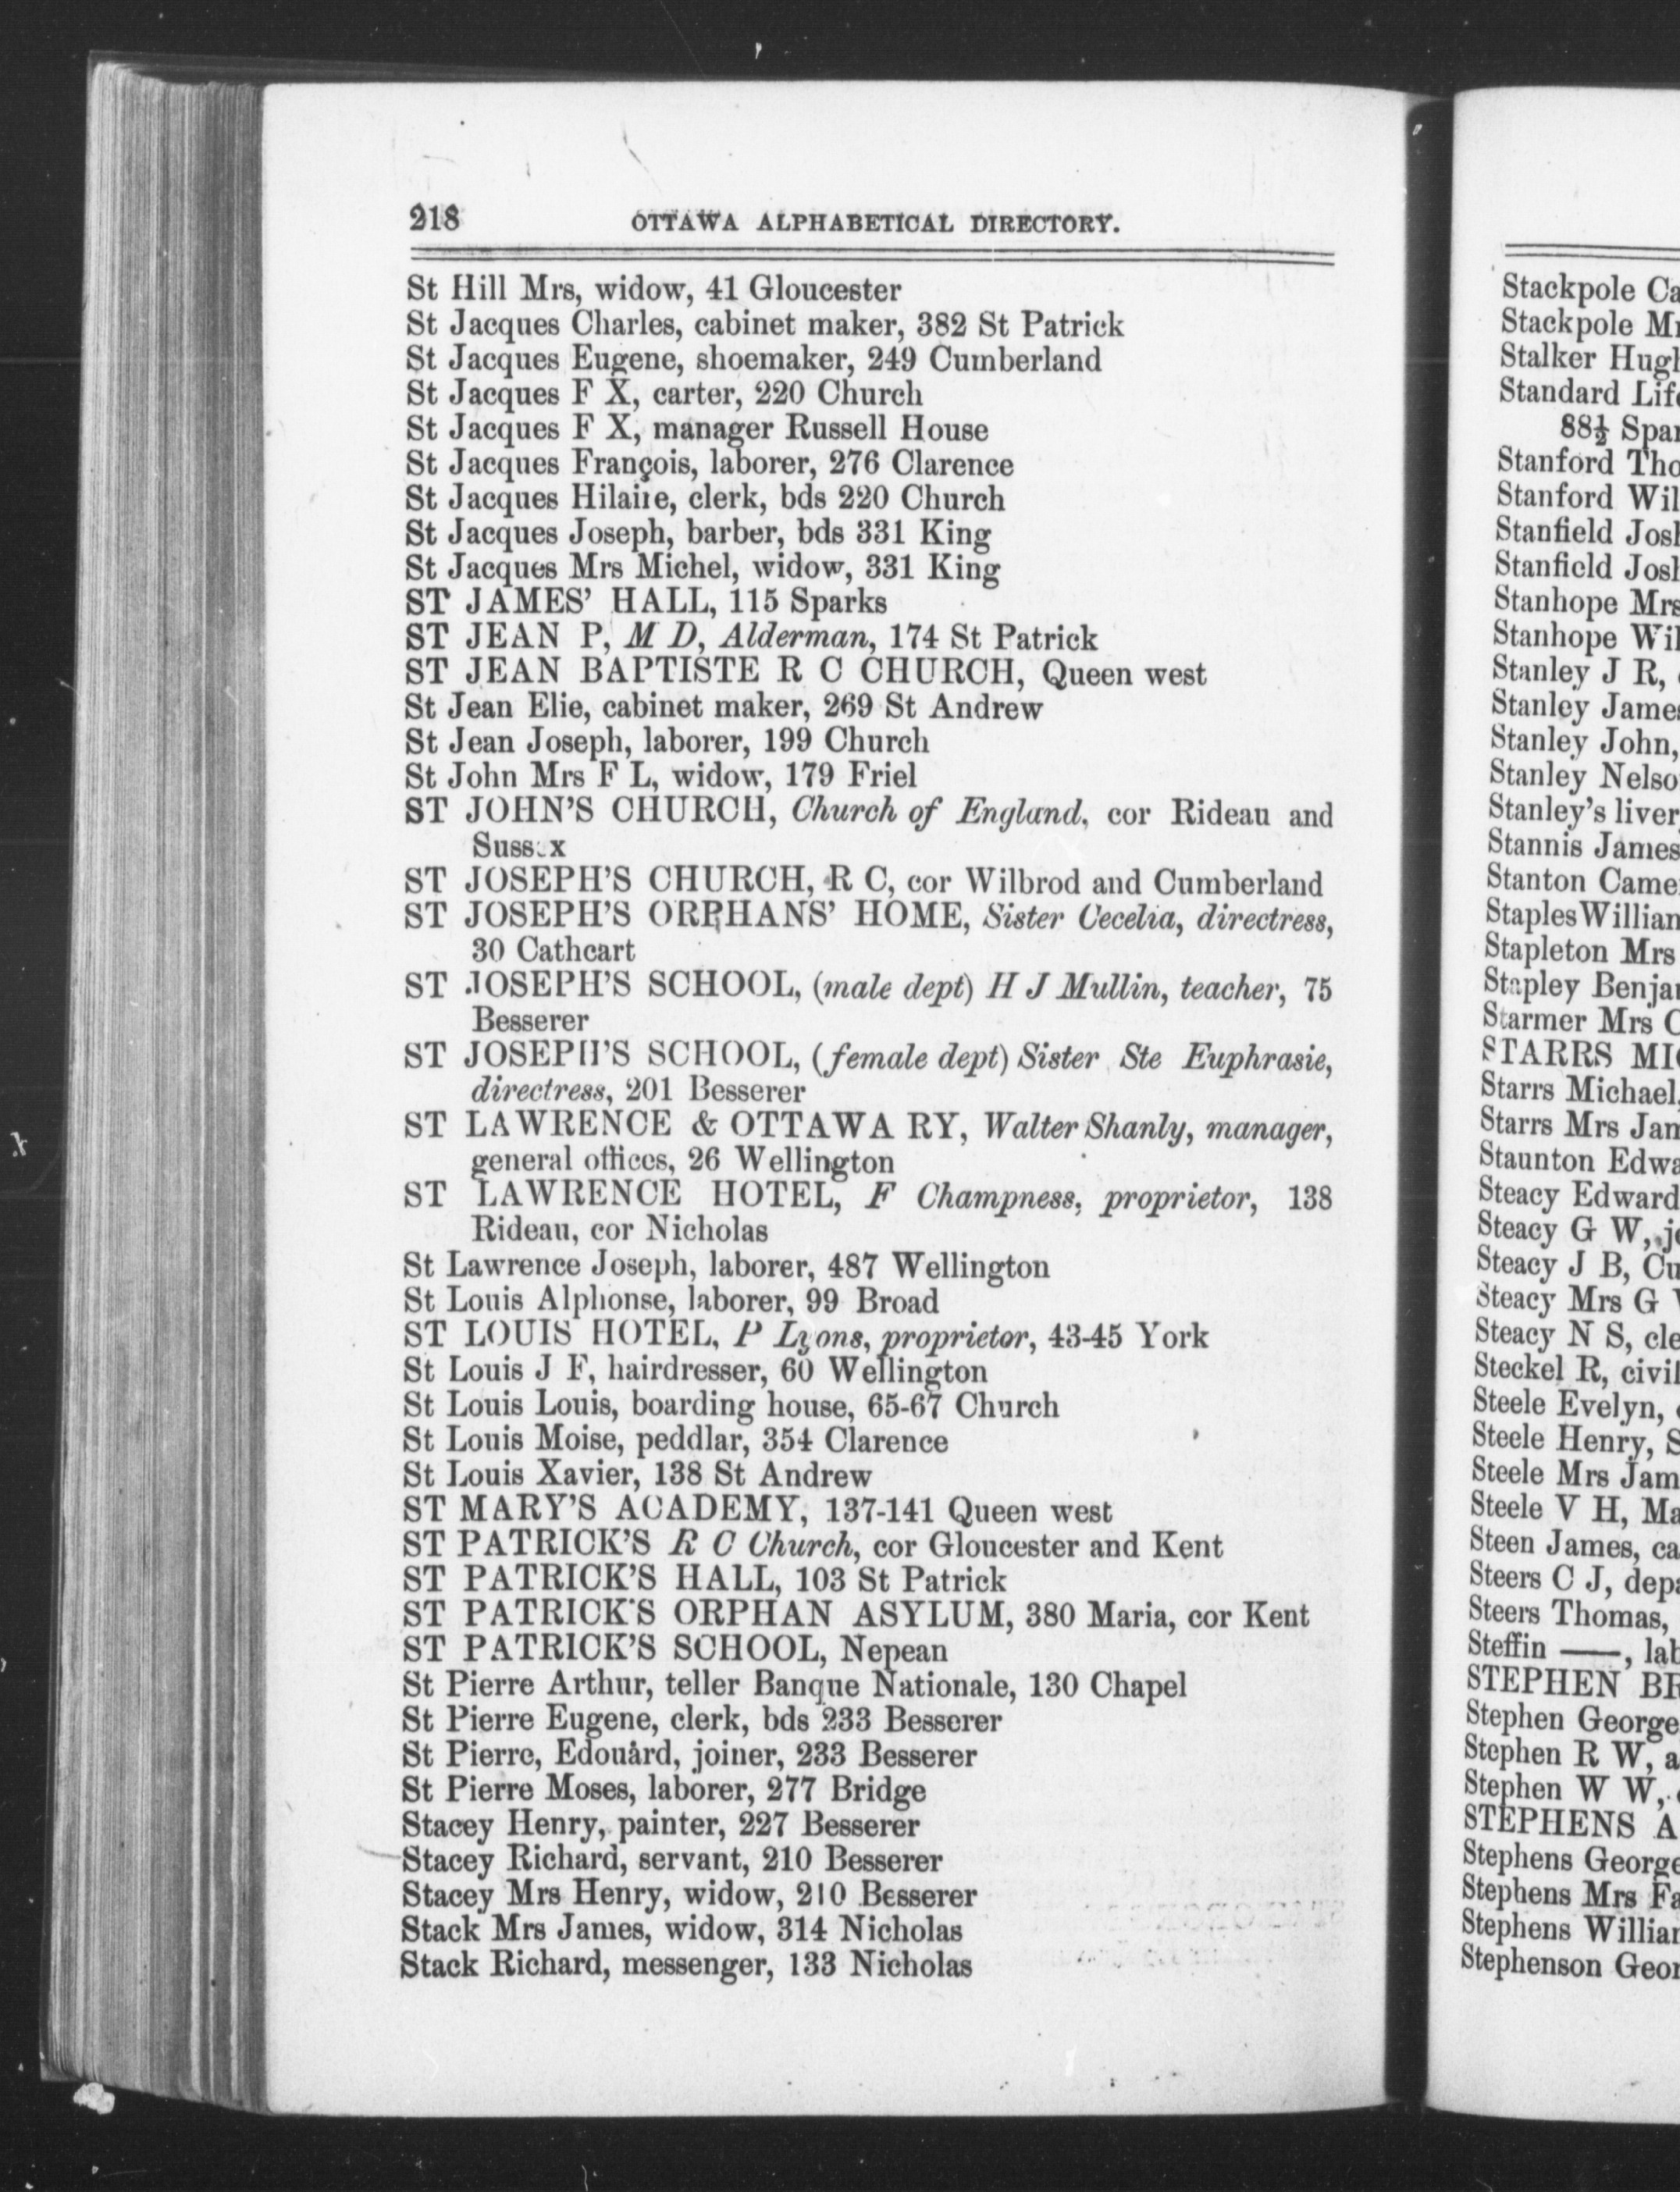 218 OTTAWA ALPHABETICAL DIRECTORY.
St Hill Mrs, widow, 41 Gloucester
St Jacques Charles, cabinet maker, 382 St Patrick
St Jacques Eugene, shoemaker, 249 Cumberland
St Jacques F X, carter, 220 Church
St Jacques F X, manager Russell House
St Jacques François, laborer, 276 Clarence
St Jacques Hilaire, clerk, bds 220 Church
St Jacques Joseph, barber, bds 331 King
St Jacques Mrs Michel, widow, 331 King
ST JAMES' HALL, 115 Sparks
ST JEAN P, M D, Alderman, 174 St Patrick
ST JEAN BAPTISTE R C CHURCH, Queen west
St Jean Elie, cabinet maker, 269 St Andrew
St Jean Joseph, laborer, 199 Church
St John Mrs F L, widow, 179 Friel
ST JOHN'S CHURCH, Church of England, cor Rideau and
Sussex
ST JOSEPH'S CHURCH, R C, cor Wilbrod and Cumberland
ST JOSEPH'S ORPHANS' HOME, Sister Cecelia, directress,
30 Cathcart
ST JOSEPH'S SCHOOL, (male dept) H J Mullin, teacher, 75
Besserer
ST JOSEPH'S SCHOOL, (female dept) Sister Ste Euphrasie,
directress, 201 Besserer
ST LAWRENCE & OTTAWA RY, Walter Shanly, manager,
general offices, 26 Wellington
ST LAWRENCE HOTEL, F Champness, proprietor, 138
Rideau, cor Nicholas
St Lawrence Joseph, laborer, 487 Wellington
St Louis Alphonse, laborer, 99 Broad
ST LOUIS HOTEL, P Lyons, proprietor, 43-45 York
St Louis J F, hairdresser, 60 Wellington
St Louis Louis, boarding house, 65-67 Church
St Louis Moise, peddlar, 354 Clarence
St Louis Xavier, 138 St Andrew
ST MARY'S ACADEMY, 137-141 Queen west
ST PATRICK'S R C Church, cor Gloucester and Kent
ST PATRICK'S HALL, 103 St Patrick
ST PATRICK'S ORPHAN ASYLUM, 380 Maria, cor Kent
ST PATRICK'S SCHOOL, Nepean
St Pierre Arthur, teller Banque Nationale, 130 Chapel
St Pierre Eugene, clerk, bds 233 Besserer
St Pierre, Edouard, joiner, 233 Besserer
St Pierre Moses, laborer, 277 Bridge
Stacey Henry, painter, 227 Besserer
Stacey Richard, servant, 210 Besserer
Stacey Mrs Henry, widow, 210 Besserer
Stack Mrs James, widow, 314 Nicholas
Stack Richard, messenger, 133 Nicholas
Stackpole
Stackpole
Stalker
Standard
88½
Stanford
Stanford
Stanfield
Stanfield
Stanhope Mrs
Stanhope
Stanley J R,
Stanley
Stanley John,
Stanley
Stanley's
Stannis James
Stanton
Staples
Stapleton Mrs
Stapley
Starmer Mrs
STARRS
Starrs Michael,
Starrs Mrs
Staunton
Steacy Edward
Steacy G W,
Steacy J B,
Steacy Mrs G
Steacy N S,
Steckel R,
Steele Evelyn,
Steele Henry,
Steele Mrs
Steele V H,
Steen James,
Steers C J,
Steers Thomas,
Steffin ——,
STEPHEN
Stephen George
Stephen R W,
Stephen W W,
STEPHENS
Stephens
Stephens Mrs
Stephens
Stephenson